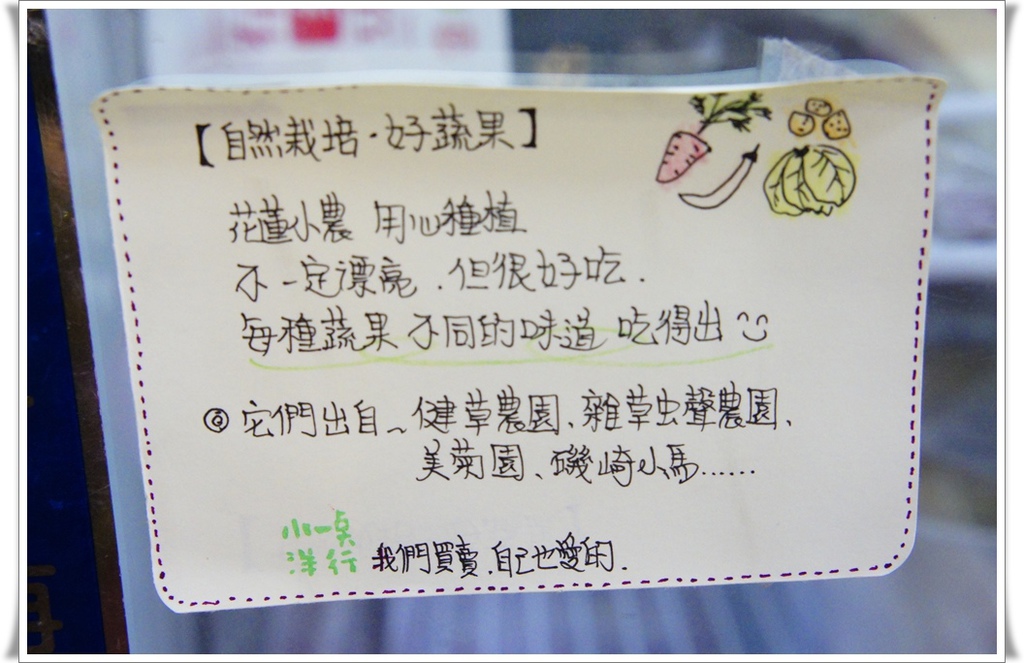 【自然栽培·好蔬果】
花蓮小農 用心種植
不一定漂亮.但很好吃.
每種蔬果 不同的味道 吃得出
◎它們出自~健草農園、雜草虫聲農園、
美菊園、磯崎小馬......
小一点
洋行 我們買賣.自己也愛的.